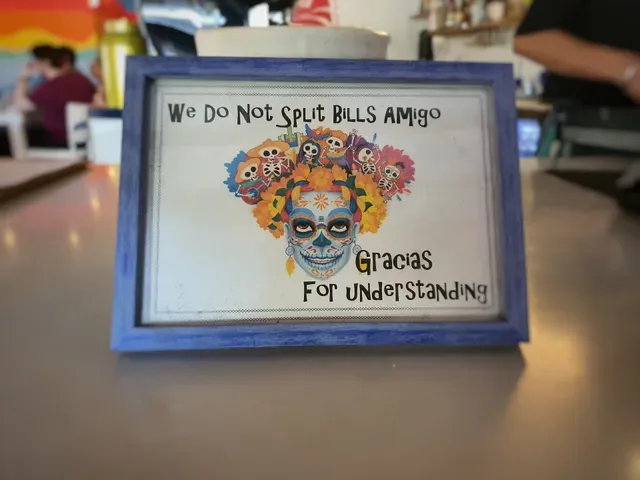 We Do Not Split Bills Amigo
Gracias
For understanding